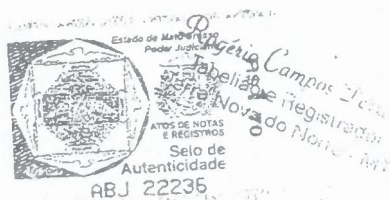 Estado de Mato Grosso
Poder Judiciário
ATOS DE NOTAS
E REGISTROS
Selo de
Autenticidade
ABJ 22236
Rogério Campos
Tabelião e Registrador
Nova do Norte - MT